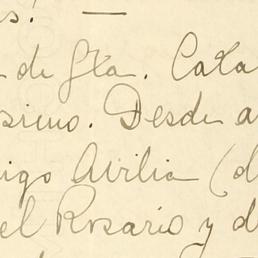 s! —
de Sta. Cata
simo. Desde a
igo Avilia (d
el Rosario y d